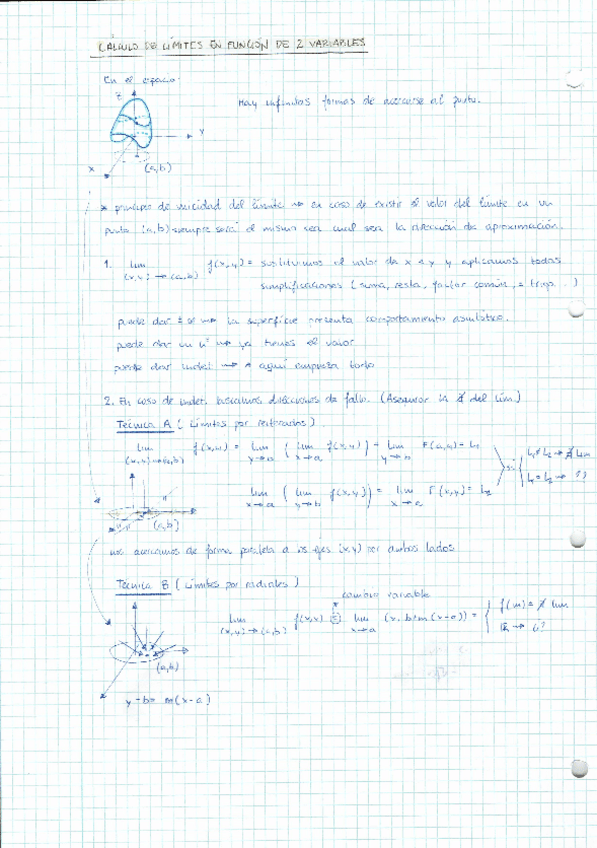 CÁLCULO DE LÍMITES EN FUNCIÓN DE 2 VARIABLES
En el espacio:
Z
Hay infinitas formas de acercarse al punto.
Y
X
(a,b)
* principio de unicidad del límite → en caso de existir el valor del límite en un
punto (a,b) siempre será el mismo sea cual sea la dirección de aproximación.
1. lim f(x,y) = sustituimos el valor de x e y y aplicamos todas
(x,y) → (a,b) simplificaciones (suma, resta, factor común, trigo...)
puede dar ± ∞ → la superficie presenta comportamiento asintótico.
puede dar un nº → ya tienes el valor
puede dar indet. → aquí empieza todo
2. En caso de indet. buscamos direcciones de fallo. (Asegurar la ∄ del lím.)
Técnica A (Límites por reiterados)
lim f(x,y) = lim ( lim f(x,y) ) = lim F(a,y) = L₁
(x,y)→(a,b) y→b x→a y→b
si L₁ ≠ L₂ → ∄ lim
L₁ = L₂ → ¿?
lim ( lim f(x,y) ) = lim F(x,y) = L₂
x→a y→b x→a
(a,b)
nos acercamos de forma paralela a los ejes (x,y) por ambos lados
Técnica B (Límites por radiales)
cambio variable
lim f(x,y) = lim (x, b+m(x-a)) = f(m) = ∄ lim
(x,y)→(a,b) x→a
ℝ → ¿?
(a,b)
y-b = m(x-a)